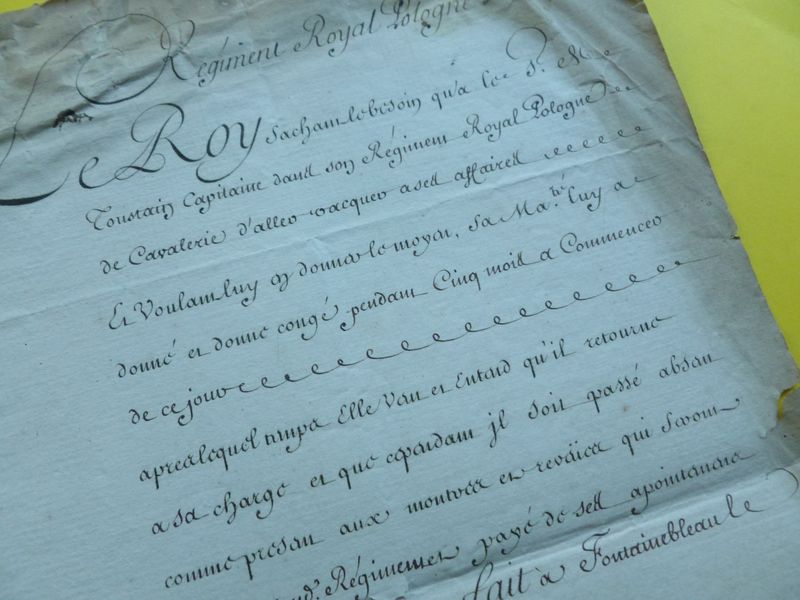 Régiment Royal Pologne
Le Roy Sachant le besoin qu'a le S. De
Toustain Capitaine dans son Régiment Royal Pologne
de Cavalerie d'aller vacquer a ses affaires
Et Voulant luy en donner le moyen, Sa Ma.té luy a
donné et donne congé pendant Cinq mois a Commencer
de ce jour
apres lequel temps Elle Veut et Entend qu'il retourne
a sa charge et que cependant jl soit passé absent
comme present aux montres et reveües qui seront
Régiment et payé de ses apointemens
fait à Fontainebleau le